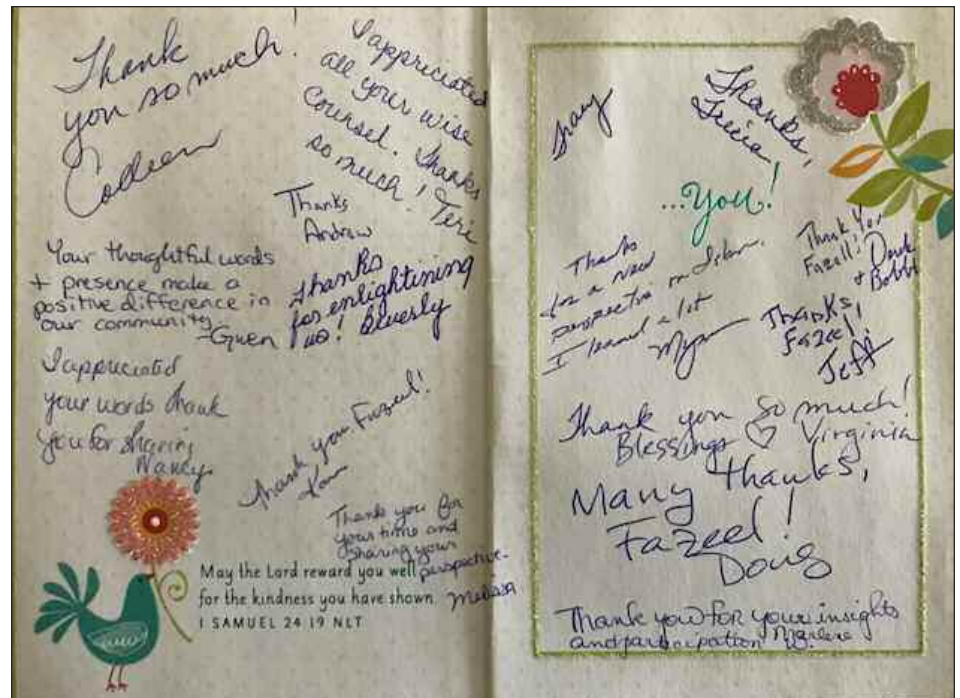 Thank
you so much.
Colleen
I appreciated
all your wise
Counsel. Thanks
so much! Teri
Thanks
Andrew
Your thoughtful words
+ presence make a
positive difference in
our community
-Gwen
Thanks
for enlightining
us! Beverly
I appreciated
your words thank
you for sharing
Nancy
Thank you Fazeel!
Thank you for
your time and
sharing your
perspective.
Melissa
May the Lord reward you well
for the kindness you have shown.
I SAMUEL 24 19 NLT
Thanks,
Tricia
...You!
Thanks
for a new
perspective on Islam.
I learned a lot
Thank You
Fazell!
+ Bobbi
Thanks,
Fazeel,
Jeff
Thank you so much!
Blessings ♡ Virginia
Many thanks,
Fazeel!
Doug
Thank you for your insights
and participation Marlene